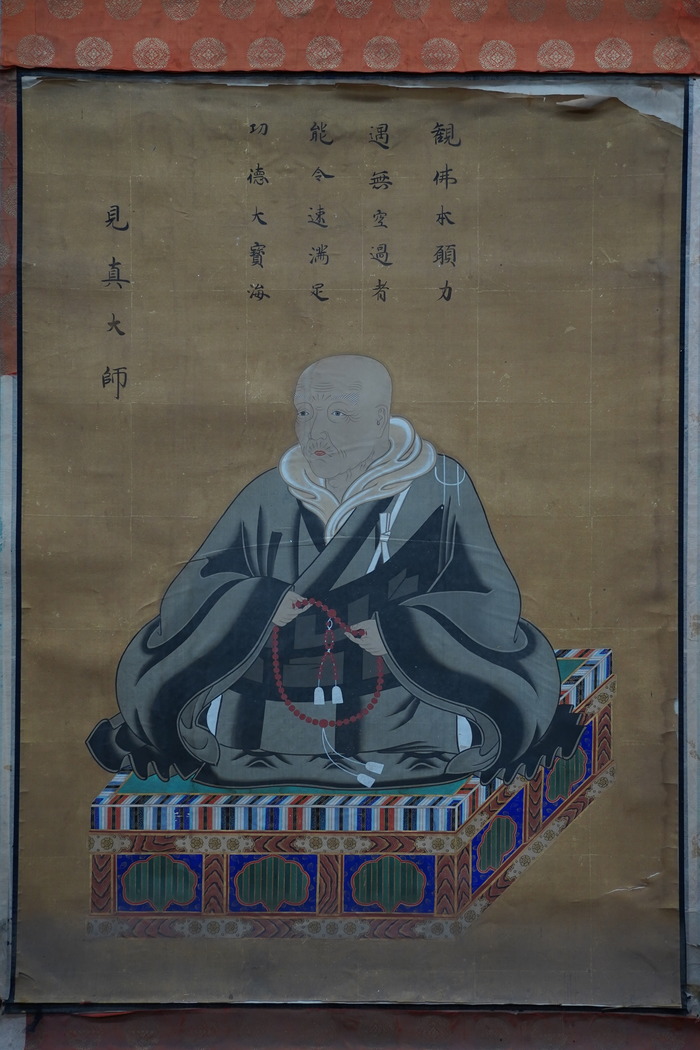 観佛本願力
遇無空過者
能令速満足
功徳大寳海
見真大師